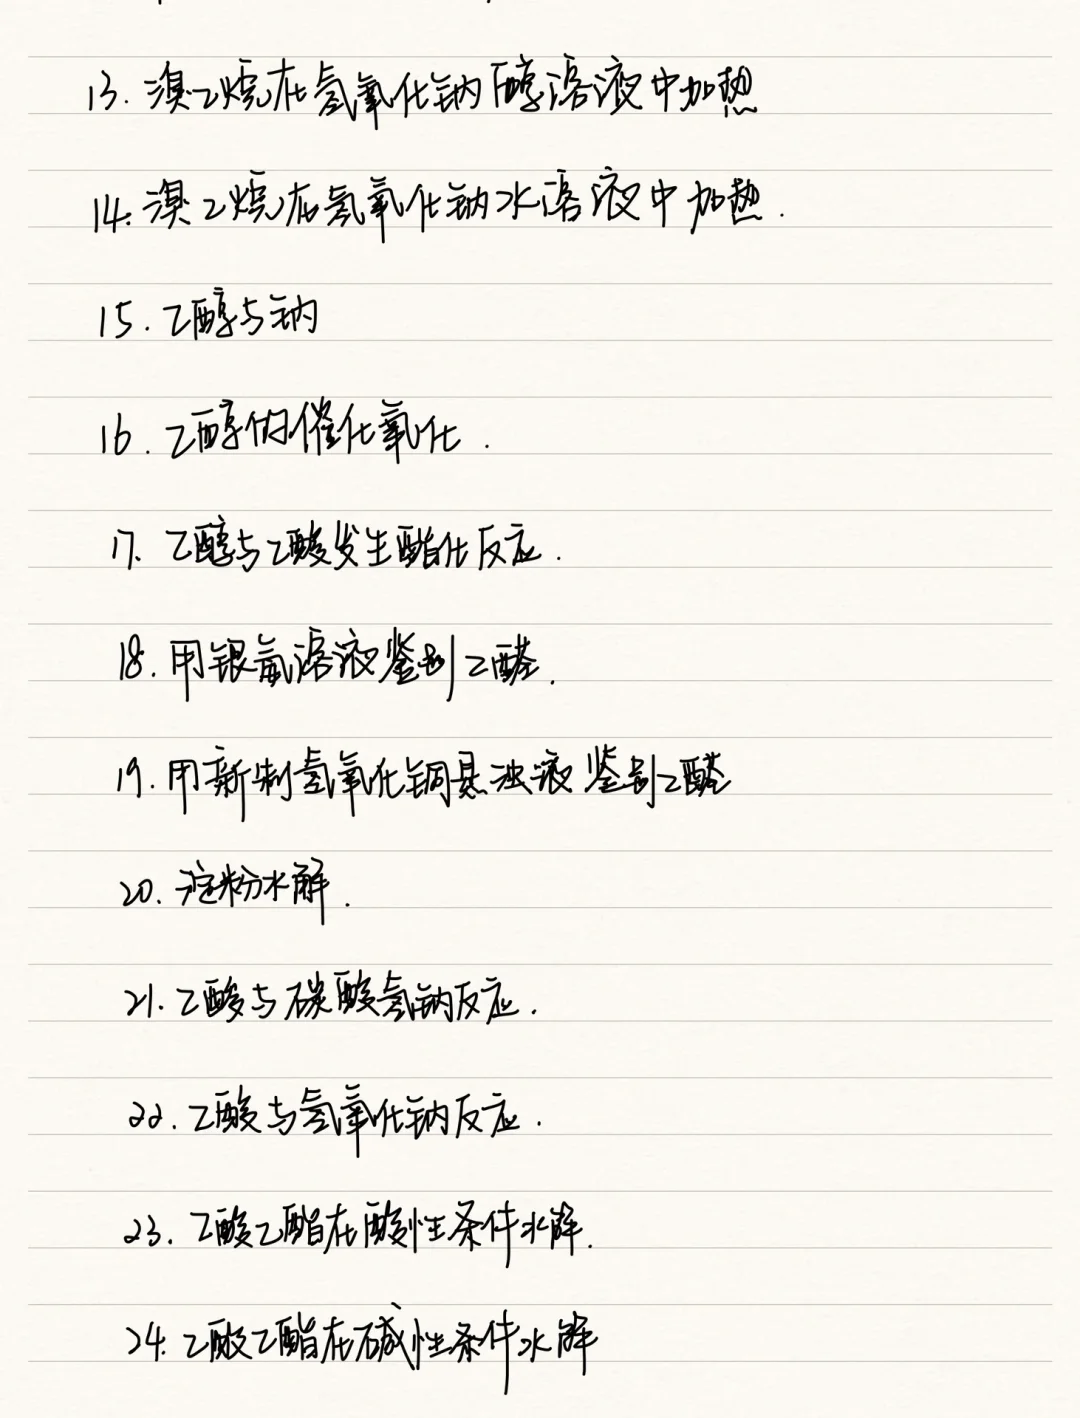 13. 溴乙烷在氢氧化钠醇溶液中加热
14. 溴乙烷在氢氧化钠水溶液中加热.
15. 乙醇与钠
16. 乙醇的催化氧化.
17. 乙醇与乙酸发生酯化反应.
18. 用银氨溶液鉴别乙醛.
19. 用新制氢氧化铜悬浊液鉴别乙醛
20. 淀粉水解.
21. 乙酸与碳酸氢钠反应.
22. 乙酸与氢氧化钠反应.
23. 乙酸乙酯在酸性条件水解.
24. 乙酸乙酯在碱性条件水解